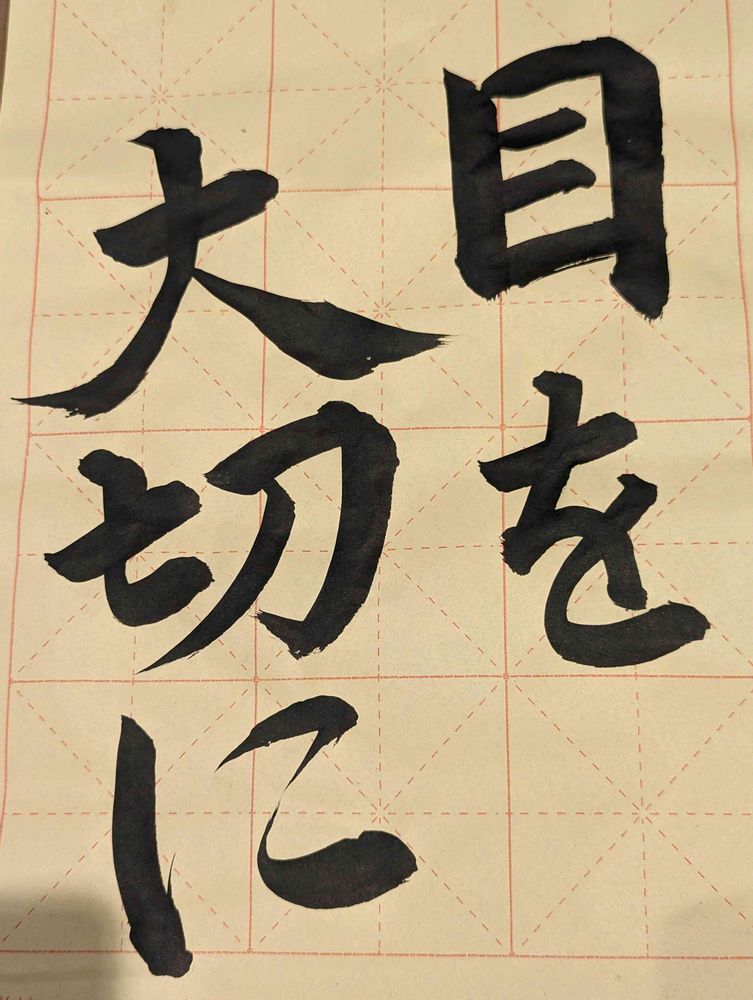 目を
大切に